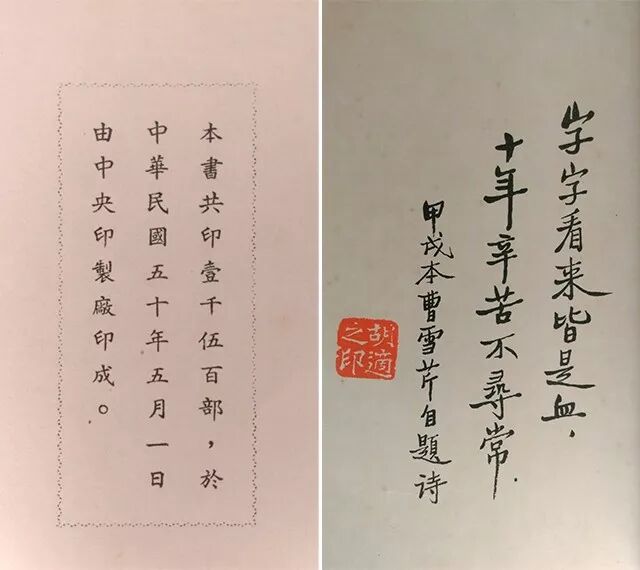 本書共印壹千伍百部，於
中華民國五十年五月一日
由中央印製廠印成。
字字看来皆是血，
十年辛苦不尋常．
甲戌本曹雪芹自題诗
胡適之印